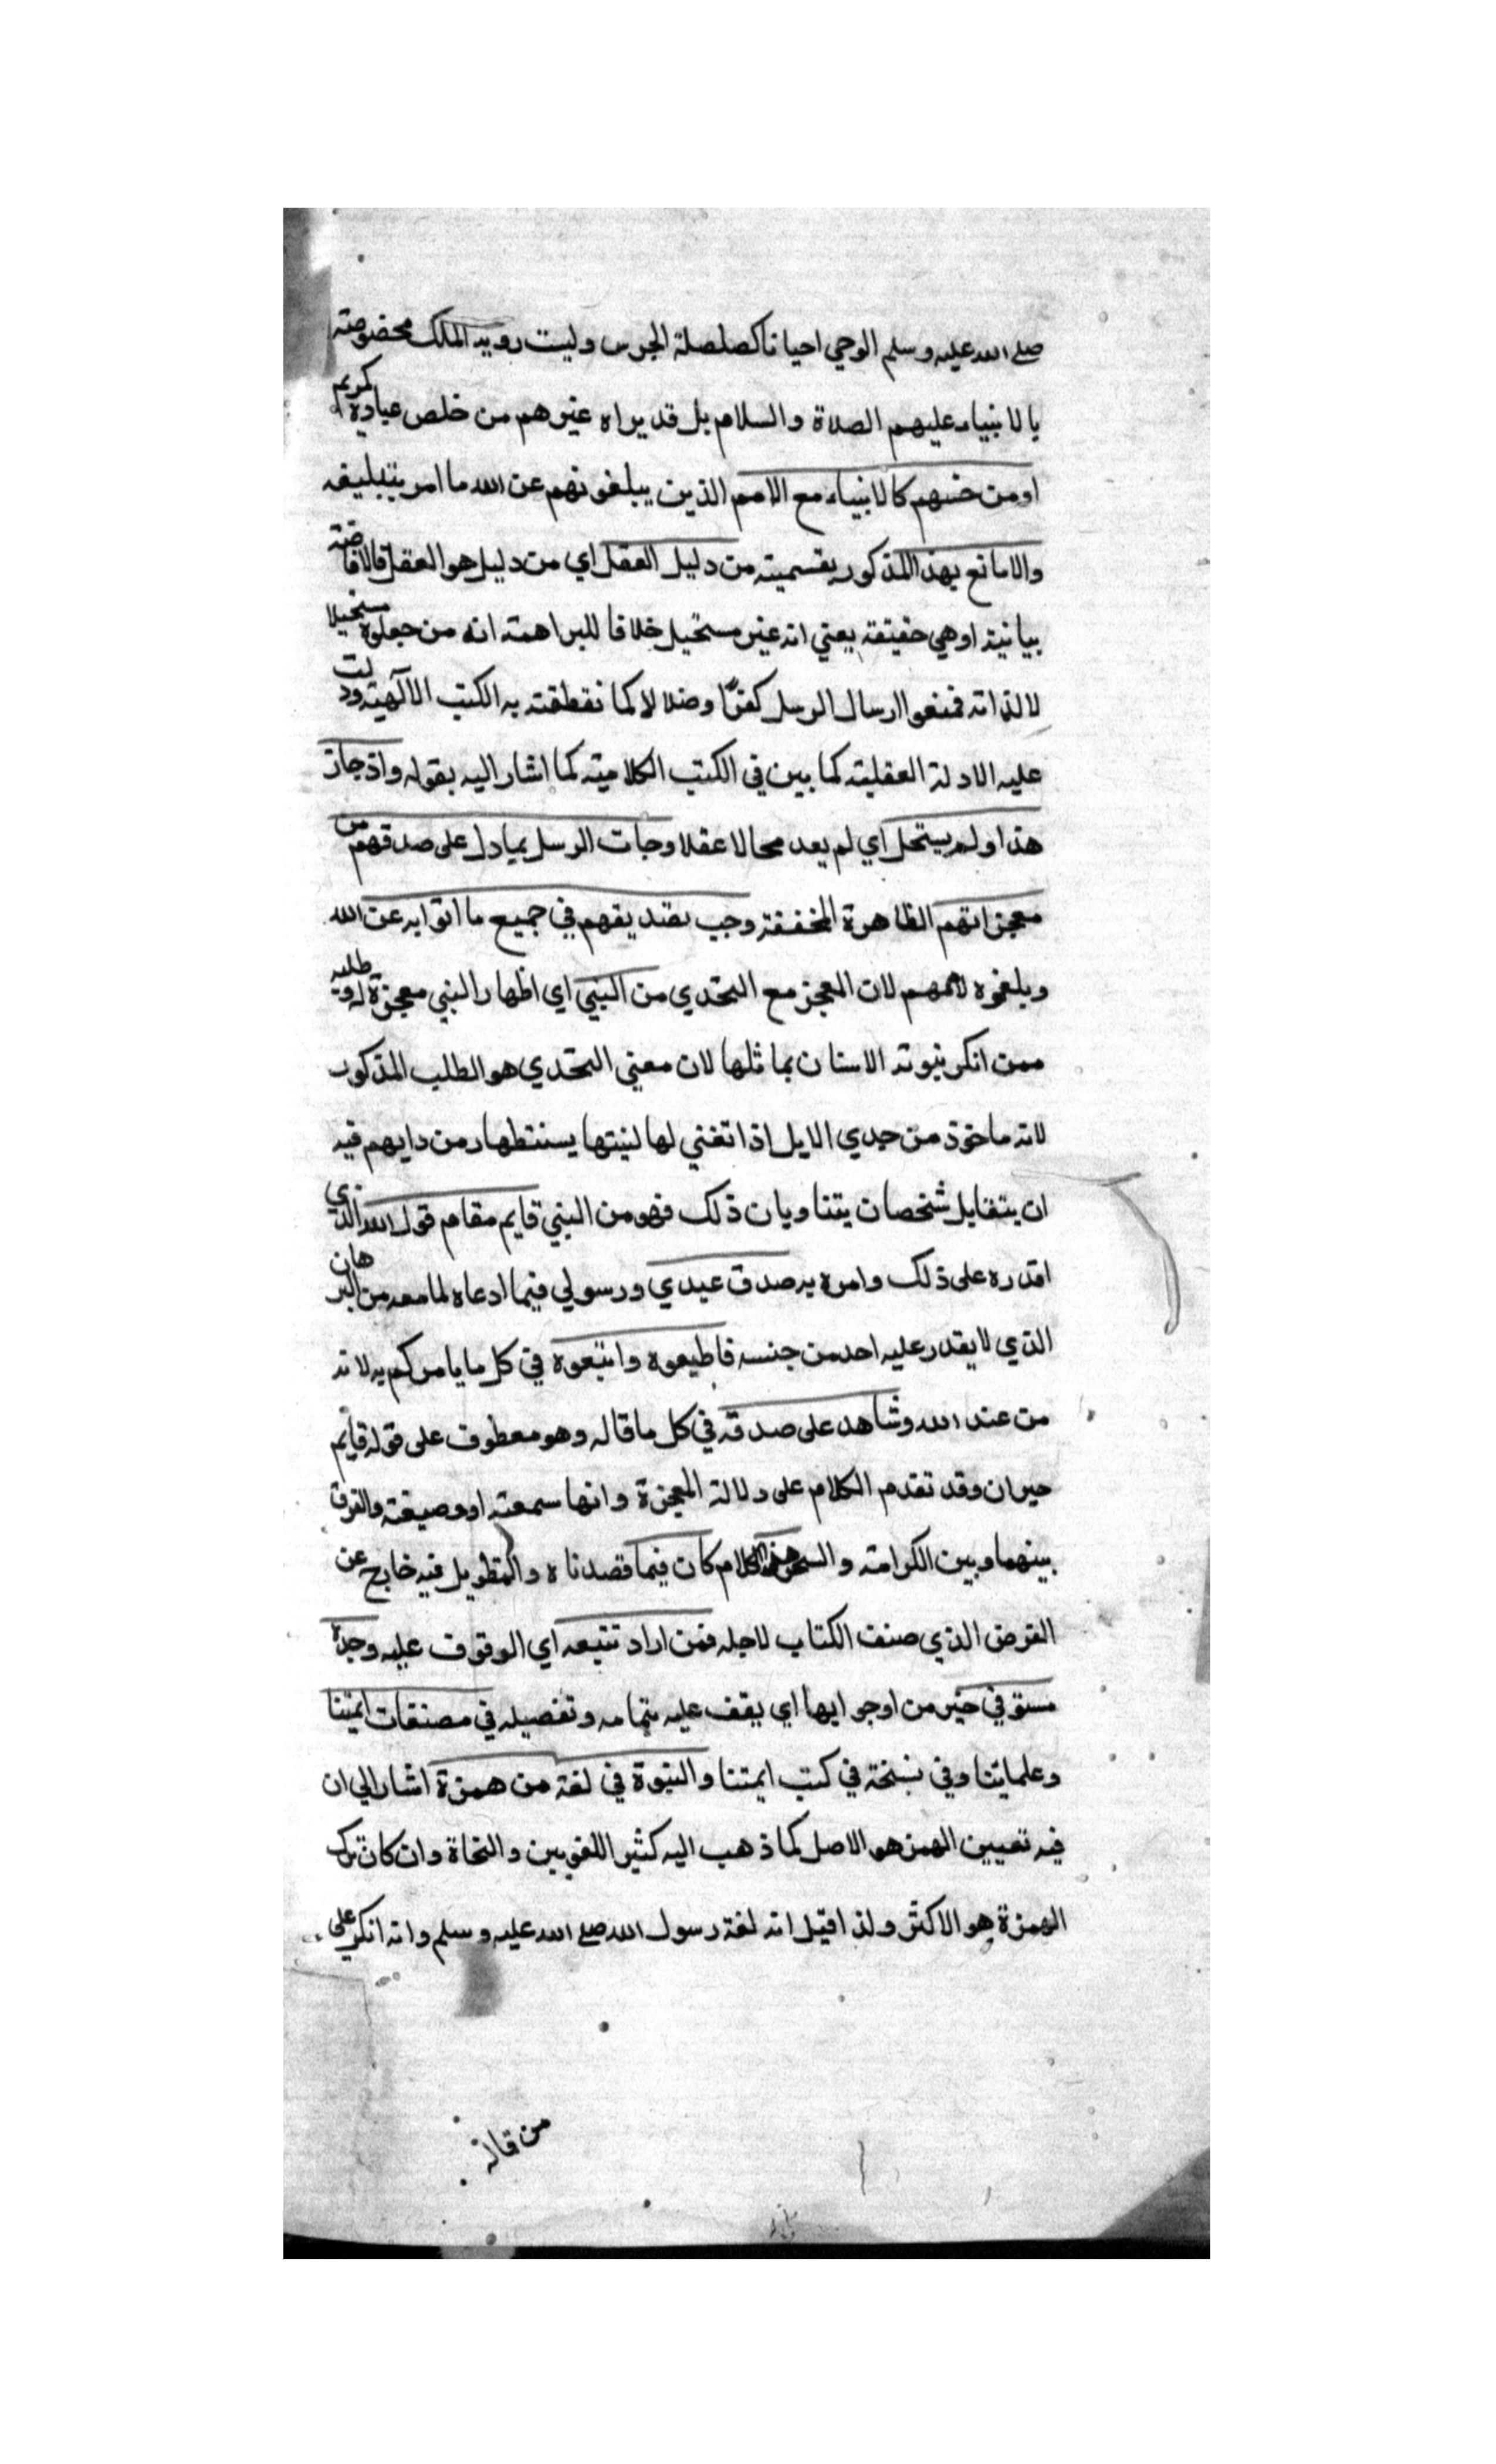 صلى الله عليه وسلم الوحي احيانا كصلصلة الجرس وليست روية الملك مخصوصة
بالانبياء عليهم الصلاة والسلام بل قد يراه غيرهم من خلص عباده كمريم
او من جنسهم كالانبياء مع الامم الذين يبلغونهم عن الله ما امر بتبليغه
والا مانع بهذا المذكور بقسميه من دليل العقل اي من دليل هو العقل فالاضافة
بيانية او هي حقيقة يعني انه غير مستحيل خلافا للبراهمة انه من جعلوه مستحيلا
لا لذاته فمنعوا ارسال الرسل كفرًا وضلالا لا كما نقطقته به الكتب الآلهية ودلت
عليه الادلة العقلية كما بين في الكتب الكلامية كما اشار اليه بقوله واذ جاز
هذا ولم يستحل اي لم يعد محالا عقلا وجات الرسل بما دل على صدقهم من
معجزاتهم الظاهرة المخففة وجب تصديقهم في جميع ما اتوا به عن الله
وبلغوه لاممهم لان المعجز مع التحدي من النبي اي اظهار النبي معجزة له وطلبه
ممن انكر نبوته الاتيان بماثلها لان معني التحدي هو الطلب المذكور
لانه ماخوذ من حدي الابل اذا تغني لها لينتها يستنتطهار من دابهم فيه
ان يتقابل شخصان يتناوبان ذلك فهو من النبي قايم مقام قول الله الذي
اقدره على ذلك وامره به صدق عبدي ورسولي فيما ادعاه لما معه من البرهان
الذي لا يقدر عليه احد من جنسه فاطيعوه واتبعوه في كل ما يامركم به لانه
من عند الله وشاهد على صدقه في كل ما قاله وهو معطوف على قوله قايم
خبر ان وقد تقدم الكلام على دلالة المعجزة وانها سمعته او وصيفة والفرق
بينهما وبين الكرامة والسحر وهذا الكلام كان فيما قصدناه والتطويل فيه خارج عن
الغرض الذي صنف الكتاب لاجله فمن اراد تتبعه اي الوقوف عليه وجده
مستوفي خير من اوجر ايها اي يقف عليه بتمامه وتفصيله في مصنفات ايمتنا
وعلمايتنا وفي نسخة في كتب ايمتنا والنبوة في لغة من همزة اشار الي ان
فيه تعيين الهمز هو الاصل كما ذهب اليه كثير اللغويين والنحاة وان كان ترك
الهمزة هو الاكثر ولذا قيل انه لغة رسول الله صلى الله عليه وسلم وانه انكر على
من قاله